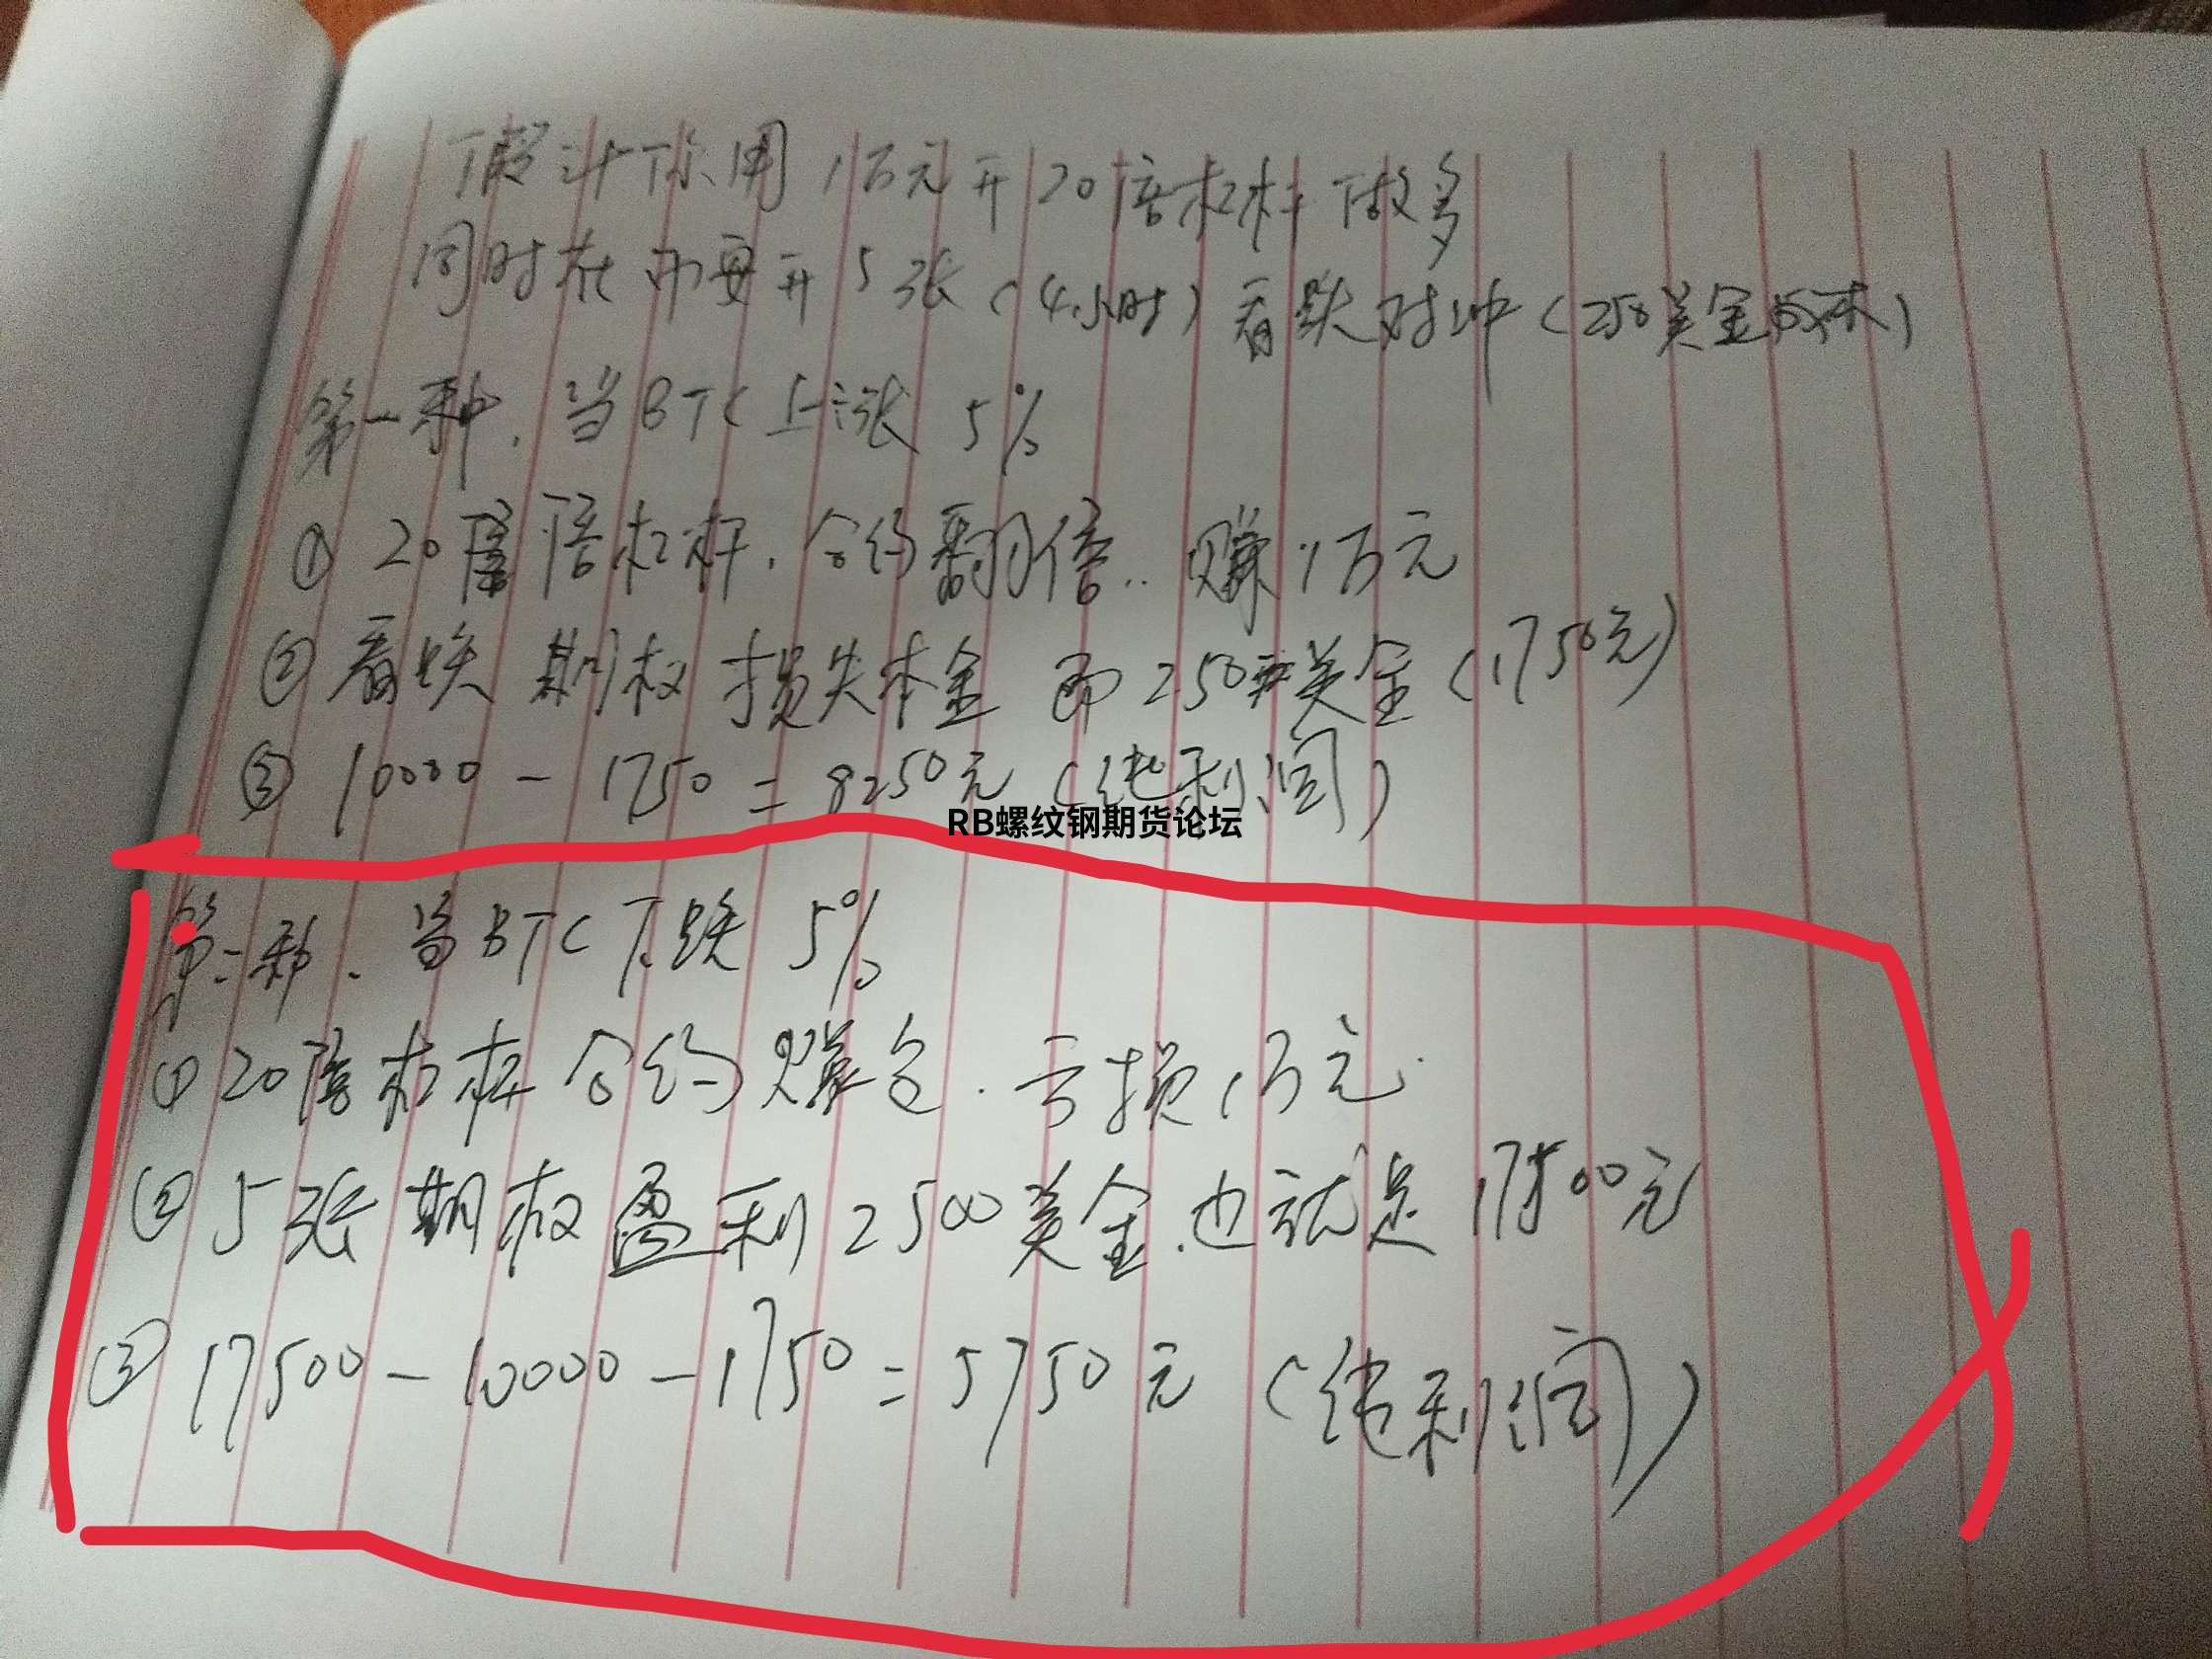 假计你用1万元开20倍杠杆做多
同时在币安开5张(4小时)看跌对冲(250美金成本)
第一种,当BTC上涨5%
① 20倍杠杆,合约翻倍..赚1万元
② 看跌期权损失本金即250美金(1750元)
③ 10000-1750=8250元(纯利润)
RB螺纹钢期货论坛
第二种、当BTC下跌5%
① 20倍杠杆合约爆仓.亏损1万元.
② 5张期权盈利2500美金.也就是17500元
③ 17500-10000-1750=5750元(纯利润)